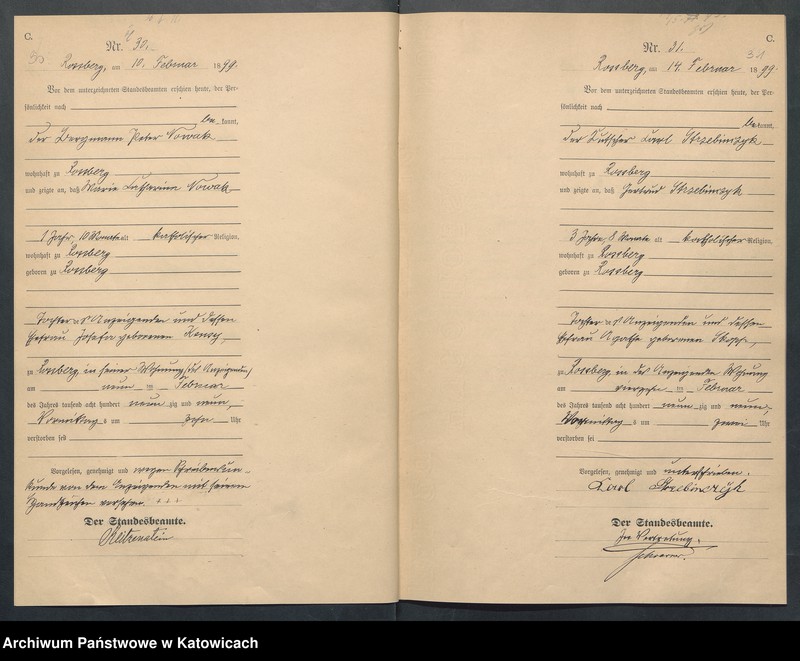 C.
Nr. 30.
Rossberg, am 10. Februar 1899.
Vor dem unterzeichneten Standesbeamten erschien heute, der Per-
sönlichkeit nach
be kannt,
der Bergmann Peter Nowak
wohnhaft zu Rossberg
und zeigte an, daß Marie Catharina Nowak
1 Jahr, 10 Monate alt katholischer Religion,
wohnhaft zu Rossberg
geboren zu Rossberg
Tochter des Anzeigenden und dessen
Ehefrau Josefa geborenen
zu Rossberg in seiner Wohnung (des Anzeigenden)
am neun ten Februar
des Jahres tausend acht hundert neun zig und neun,
Vormittags um zehn Uhr
verstorben sei
Vorgelesen, genehmigt und wegen Schreibensun-
kunde von dem Anzeigenden mit seinem
Handzeichen versehen. + + +
Der Standesbeamte.
Reitzenstein
C.
Nr. 31.
31
Rossberg, am 14. Februar 1899.
Vor dem unterzeichneten Standesbeamten erschien heute, der Per-
sönlichkeit nach
be kannt,
der Kutscher Carl Strzebinczyk
wohnhaft zu Rossberg
und zeigte an, daß Gertrud Strzebinczyk
3 Jahre, 8 Monate alt katholischer Religion,
wohnhaft zu Rossberg
geboren zu Rossberg
Tochter des Anzeigenden und dessen
Ehefrau Agathe geborenen
zu Rossberg in des Anzeigenden Wohnung
am ten Februar
des Jahres tausend acht hundert neun zig und neun,
Nachmittags um zwei Uhr
verstorben sei
Vorgelesen, genehmigt und unterschrieben.
Carl Strzebinczyk
Der Standesbeamte.
In Vertretung.
Archiwum Państwowe w Katowicach